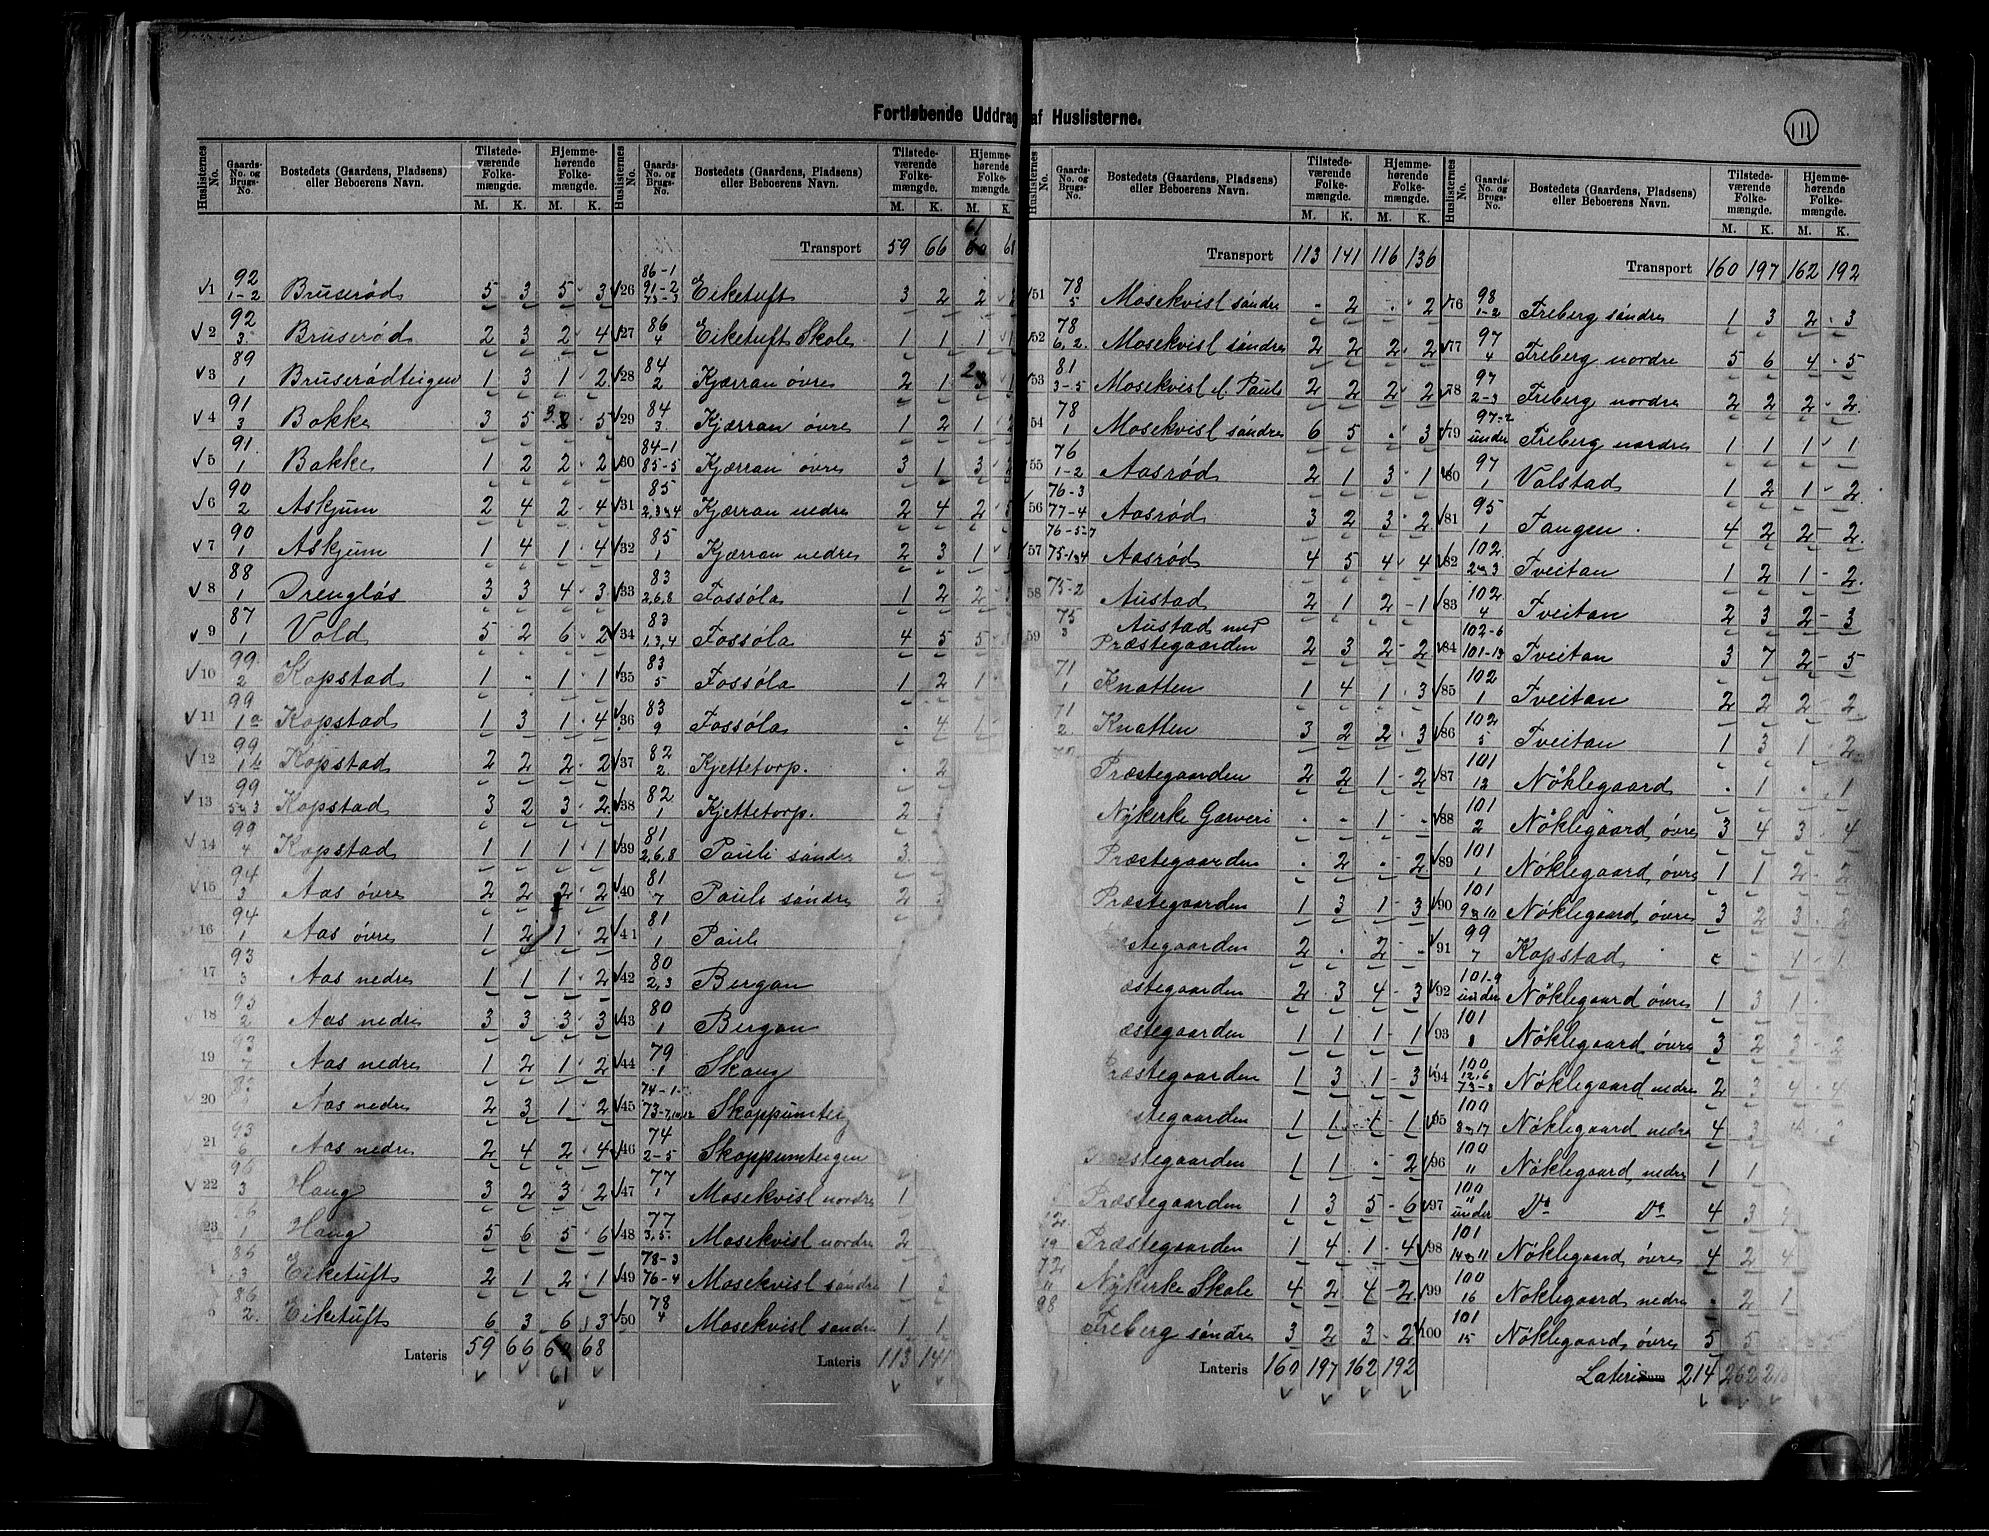 Fortløbende Uddrag af Huslisterne.
111
Huslisternes No. | Gaards-No. og Brugs-No. | Bostedets (Gaardens, Pladsens) eller Beboerens Navn. | Tilstedeværende Folkemængde. M. K. | Hjemmehørende Folkemængde. M. K.
1 92 1-2 Bruserød 5 3 5 3
2 92 3 Bruserød 2 3 2 4
3 89 1 Bruserødteigen 1 3 1 2
4 91 3 Bakke 3 5 3 5
5 91 1 Bakke 1 2 2 2
6 90 2 Askjum 2 4 2 4
7 90 1 Askjum 1 4 1 4
8 88 1 Drengløs 3 3 4 3
9 87 1 Vold 5 2 6 2
10 99 2 Kopstad 1 - 1 1
11 99 1a Kopstad 1 3 1 4
12 99 1b Kopstad 2 2 2 2
13 99 5 og 3 Kopstad 3 2 3 2
14 99 4 Kopstad 1 1 1 1
15 94 3 Aas övre 2 2 2 2
16 94 1 Aas övre 1 2 1 2
17 93 3 Aas nedre 1 1 1 2
18 93 2 Aas nedre 3 3 3 3
19 93 7 Aas nedre 1 2 1 2
20 Aas nedre 2 3 1 2
21 93 6 Aas nedre 2 4 2 4
22 96 3 Haug 3 2 3 2
23 1 Haug 5 6 5 6
3 Eiketuft 2 1 2 1
86 2 Eiketuft 6 3 6 3
Lateris 59 66 61 68
Huslisternes No. | Gaards-No. og Brugs-No. | Bostedets (Gaardens, Pladsens) eller Beboerens Navn. | Tilstedeværende Folkemængde. M. K. | Hjemme-hørende Folke-mængde. M. K.
Transport 59 66 61
26 86-1 91-2 73-3 Eiketuft 3 2 2
27 86 4 Eiketuft Skole 1 1 1
28 84 2 Kjærran övre 2 1 2
29 84 3 Kjærran övre 1 2 1
30 84-1 85-5 Kjærran övre 3 1 3
31 85 2,3 og 4 Kjærran nedre 2 4 2
32 85 1 Kjærran nedre 2 3 1
33 83 2,6,8 Fossöla 1 2 2
34 83 1,3,4 Fossöla 4 5 5
35 83 5 Fossöla 1 2 1
36 83 9 Fossöla . 4 1
37 82 2 Kjettetorp. . 2
38 82 1 Kjettetorp. 2
39 81 2,6,8 Pauli söndre 3
40 81 7 Pauli söndre 2
41 81 1 Pauli
42 80 2,3 Bergan
43 80 1 Bergan
44 79 1 Skaug
45 74-1 73-7,10,12 Skoppumteig
46 74 2-5 Skoppumteigen
47 77 1 Mosekvisl nordre 1
48 77 3,5 Mosekvisl nordre 2
49 78-3 76-4 Mosekvisl söndre 1 3
50 78 4 Mosekvisl söndre 1 1
Lateris 113 141
No. | Gaards-No. og Brugs-No. | Bostedets (Gaardens, Pladsens) eller Beboerens Navn. | Tilstedeværende Folkemængde. M. K. | Hjemmehørende Folkemængde. M. K.
Transport 113 141 116 136
51 78 5 Mosekvisl söndre . 2 . 2
52 78 6,2 Mosekvisl söndre 2 2 2 2
53 81 3-5 Mosekvisl f Pauli 2 2 2 2
54 78 1 Mosekvisl söndre 6 5 . 3
55 76 1-2 Aasröd 2 1 3 1
56 76-3 77-4 Aasröd 3 2 3 2
57 76-5-7 75-1 og 4 Aasröd 4 5 4 4
58 75-2 Austad 2 1 2 1
59 75 3 Austad med Præstegaarden 2 3 2 2
71 1 Knatten 1 4 1 3
71 2 Knatten 3 2 2 3
Præstegaarden 2 2 1 2
Nykirke Garveri - - 1 -
Præstegaarden . 2 . 2
Præstegaarden 1 3 1 3
æstegaarden 2 . 2 -
æstegaarden 2 3 4 3
æstegaarden 1 1 1 1
Præstegaarden 1 3 1 3
stegaarden 1 1 1 1
Præstegaarden 1 1 . 2
Præstegaarden 1 3 5 6
19 Præstegaarden 1 4 1 4
72 Nykirke Skole 4 2 4 2
98 Freberg söndre 3 2 3 2
Lateris 160 197 162 192
Huslisternes No. | Gaards-No. og Brugs-No. | Bostedets (Gaardens, Pladsens) eller Beboerens Navn. | Tilstedeværende Folkemængde. M. K. | Hjemmehørende Folkemængde. M. K.
Transport 160 197 162 192
76 98 1-2 Freberg söndre 1 3 2 3
77 97 4 Freberg nordre 5 6 4 5
78 97 2-3 Freberg nordre 2 2 2 2
79 97-2 under Freberg nordre 1 1 1 1
80 97 1 Valstad 1 2 1 2
81 95 1 Tangen 4 2 2 2
82 102 2 og 3 Tveitan 1 2 1 2
83 102 4 Tveitan 2 3 2 3
84 102-6 101-13 Tveitan 3 7 2 5
85 102 1 Tveitan 2 2 2 2
86 102 5 Tveitan 1 3 1 2
87 101 12 Nöklegaard . 1 . 1
88 101 2 Nöklegaard övre 3 4 3 4
89 101 1 Nöklegaard övre 1 1 2 2
90 101 9 og 10 Nöklegaard övre 3 2 3 2
91 99 7 Kopstad - 1 1
92 101-9 under Nöklegaard övre 1 3 1
93 101 8 Nöklegaard övre 3 2 3 2
94 100 12,6 73-8 Nöklegaard nedre 2 3 4 4
95 100 8 og 17 Nöklegaard nedre 4 3 4 3
96 100 " Nöklegaard nedre 1 1
97 100 " under Do Do 4 3
98 101 14 og 11 Nöklegaard övre 4 2 4
99 100 16 Nöklegaard nedre . 2 1
100 101 15 Nöklegaard övre 5 5
Lateris Sum 214 262